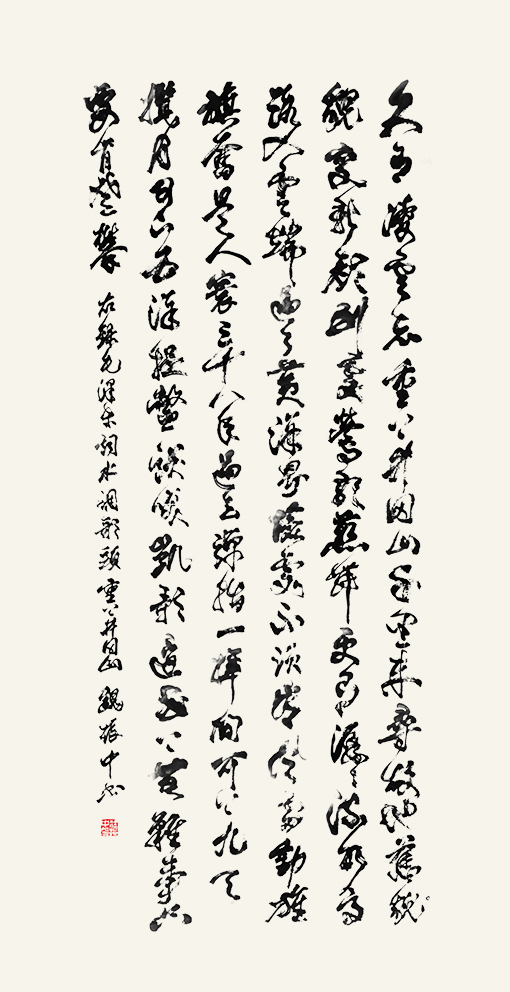 久有凌雲志重上井岡山千里來尋故地舊貌
貌變新顏到處鶯歌燕舞更有潺々流水高
路入雲端過了黃洋界險處不須看風雷動旌
旗奮是人寰三十八年過去彈指一揮間可上九天
攬月可下五洋捉鱉談笑凱歌還世上無難事只
要肯登攀 右錄毛澤東詞水調歌頭重上井岡山 魏振中書